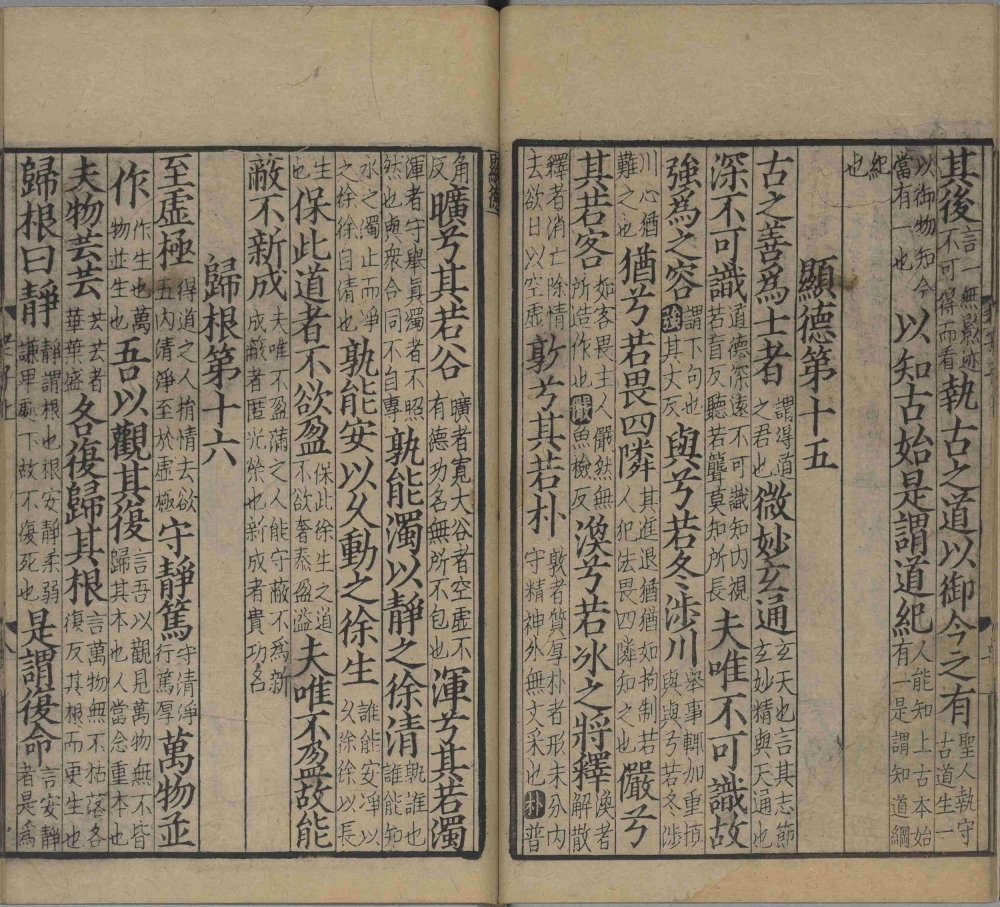 其後言一無影迹不可得而看執古之道以御今之有聖人執守古道生一
以御物知今當有一也以知古始是謂道紀人能知上古本始有一是謂知道綱
紀也
顯德第十五
古之善爲士者謂得道之君也微妙玄通玄天也言其志節玄妙精與天通也
深不可識道德深遠不可識知内視若盲反聽若聾莫知所長夫唯不可識故
強爲之容謂下句也強其丈反與兮若冬涉川舉事輒加重慎與與兮若冬涉
川心猶難之也猶兮若畏四隣其進退猶猶如拘制若人犯法畏四隣知之也儼兮
其若客如客畏主人儼然無所造作也儼魚檢反渙兮若冰之將釋渙者解散
釋者消亡除情去欲日以空虛敦兮其若朴敦者質厚朴者形未分内守精神外無文采也朴普
角反曠兮其若谷曠者寬大谷者空虛不有德功名無所不包也渾兮其若濁
渾者守舉真濁者不照然也與衆合同不自專孰能濁以靜之徐清孰誰也誰能知
水之濁止而淨之徐徐自清也孰能安以久動之徐生誰能安淨以久徐徐以長
生也保此道者不欲盈保此徐生之道不欲奢泰盈溢夫唯不盈故能
蔽不新成夫唯不盈滿之人能守蔽不爲新成蔽者匿光榮也新成者貴功名
歸根第十六
至虛極得道之人捐情去欲五内清淨至於虛極守靜篤守清淨行篤厚萬物並
作作生也萬物並生也吾以觀其復言吾以觀見萬物無不皆歸其本也人當念重本也
夫物芸芸芸芸者華葉盛各復歸其根言萬物無不枯落各復反其根而更生也
歸根曰靜靜謂根也根安靜柔弱謙卑處下故不復死也是謂復命言安靜者是爲